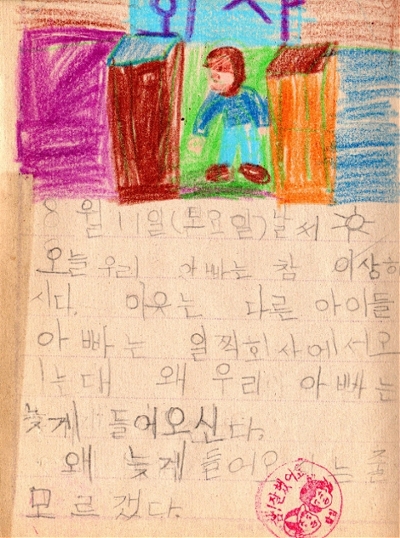 회사
8월 11일(토요일)날씨
오늘 우리 아빠는 참 이상하
시다. 아유는 다른 아이들
아빠는 일찍회사에서오
는대 왜 우리 아빠는
늦게 들어오신다.
왜 늦게 들어오 는 줄
모르겠다.
참 잘했어요